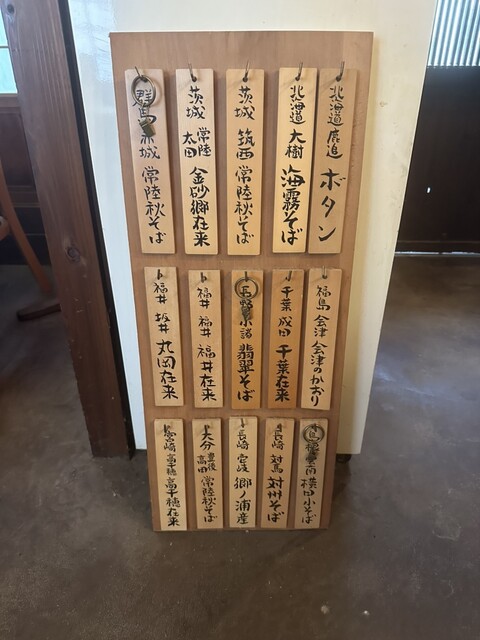 北海道 鹿追 ボタン
北海道 大樹 海霧そば
茨城 筑西 常陸秋そば
茨城 常陸太田 金砂郷在来
群馬 赤城 常陸秋そば
福島 会津 会津のかおり
千葉 成田 千葉在来
長野 小諸 翡翠そば
福井 福井 福井在来
福井 坂井 丸岡在来
島根 雲南 横田小そば
長崎 対馬 対州そば
長崎 壱岐 郷ノ浦産
大分 豊後高田 常陸秋そば
宮崎 高千穂 高千穂在来